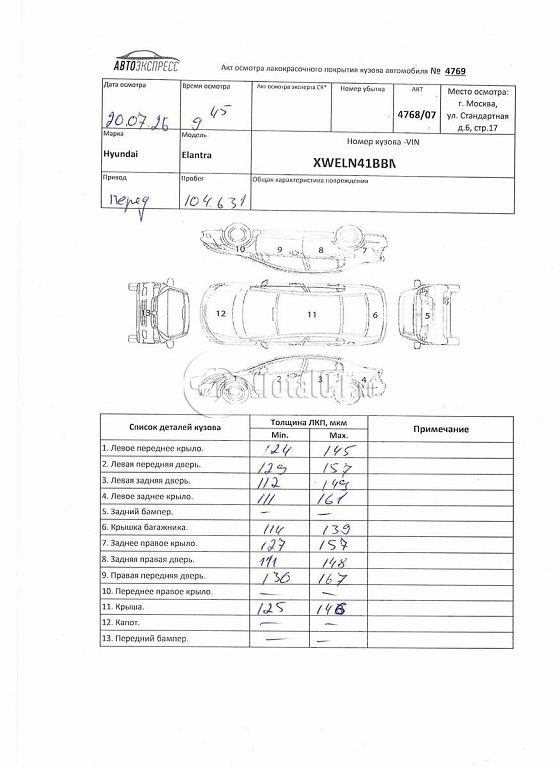 АВТОЭКСПРЕСС
Акт осмотра лакокрасочного покрытия кузова автомобиля № 4769
Дата осмотра Время осмотра Акт осмотра эксперта СК* Номер убытка АКТ Место осмотра:
20.07.26 9 45 4768/07 г. Москва,
ул. Стандартная
д.6, стр.17
Марка Модель Номер кузова -VIN
Hyundai Elantra XWELN41BB
Привод Пробег Общая характеристика повреждения
Перед 104.631
10 9 8 7
13 12 11 6 5
1 2 3 4
Total01
Список деталей кузова Толщина ЛКП, мкм Примечание
Min. Max.
1. Левое переднее крыло. 124 145
2. Левая передняя дверь. 129 157
3. Левая задняя дверь. 112 149
4. Левое заднее крыло. 111 161
5. Задний бампер. – –
6. Крышка багажника. 114 139
7. Заднее правое крыло. 127 157
8. Задняя правая дверь. 111 148
9. Правая передняя дверь. 130 167
10. Переднее правое крыло. – –
11. Крыша. 125 146
12. Капот. – –
13. Передний бампер. – –